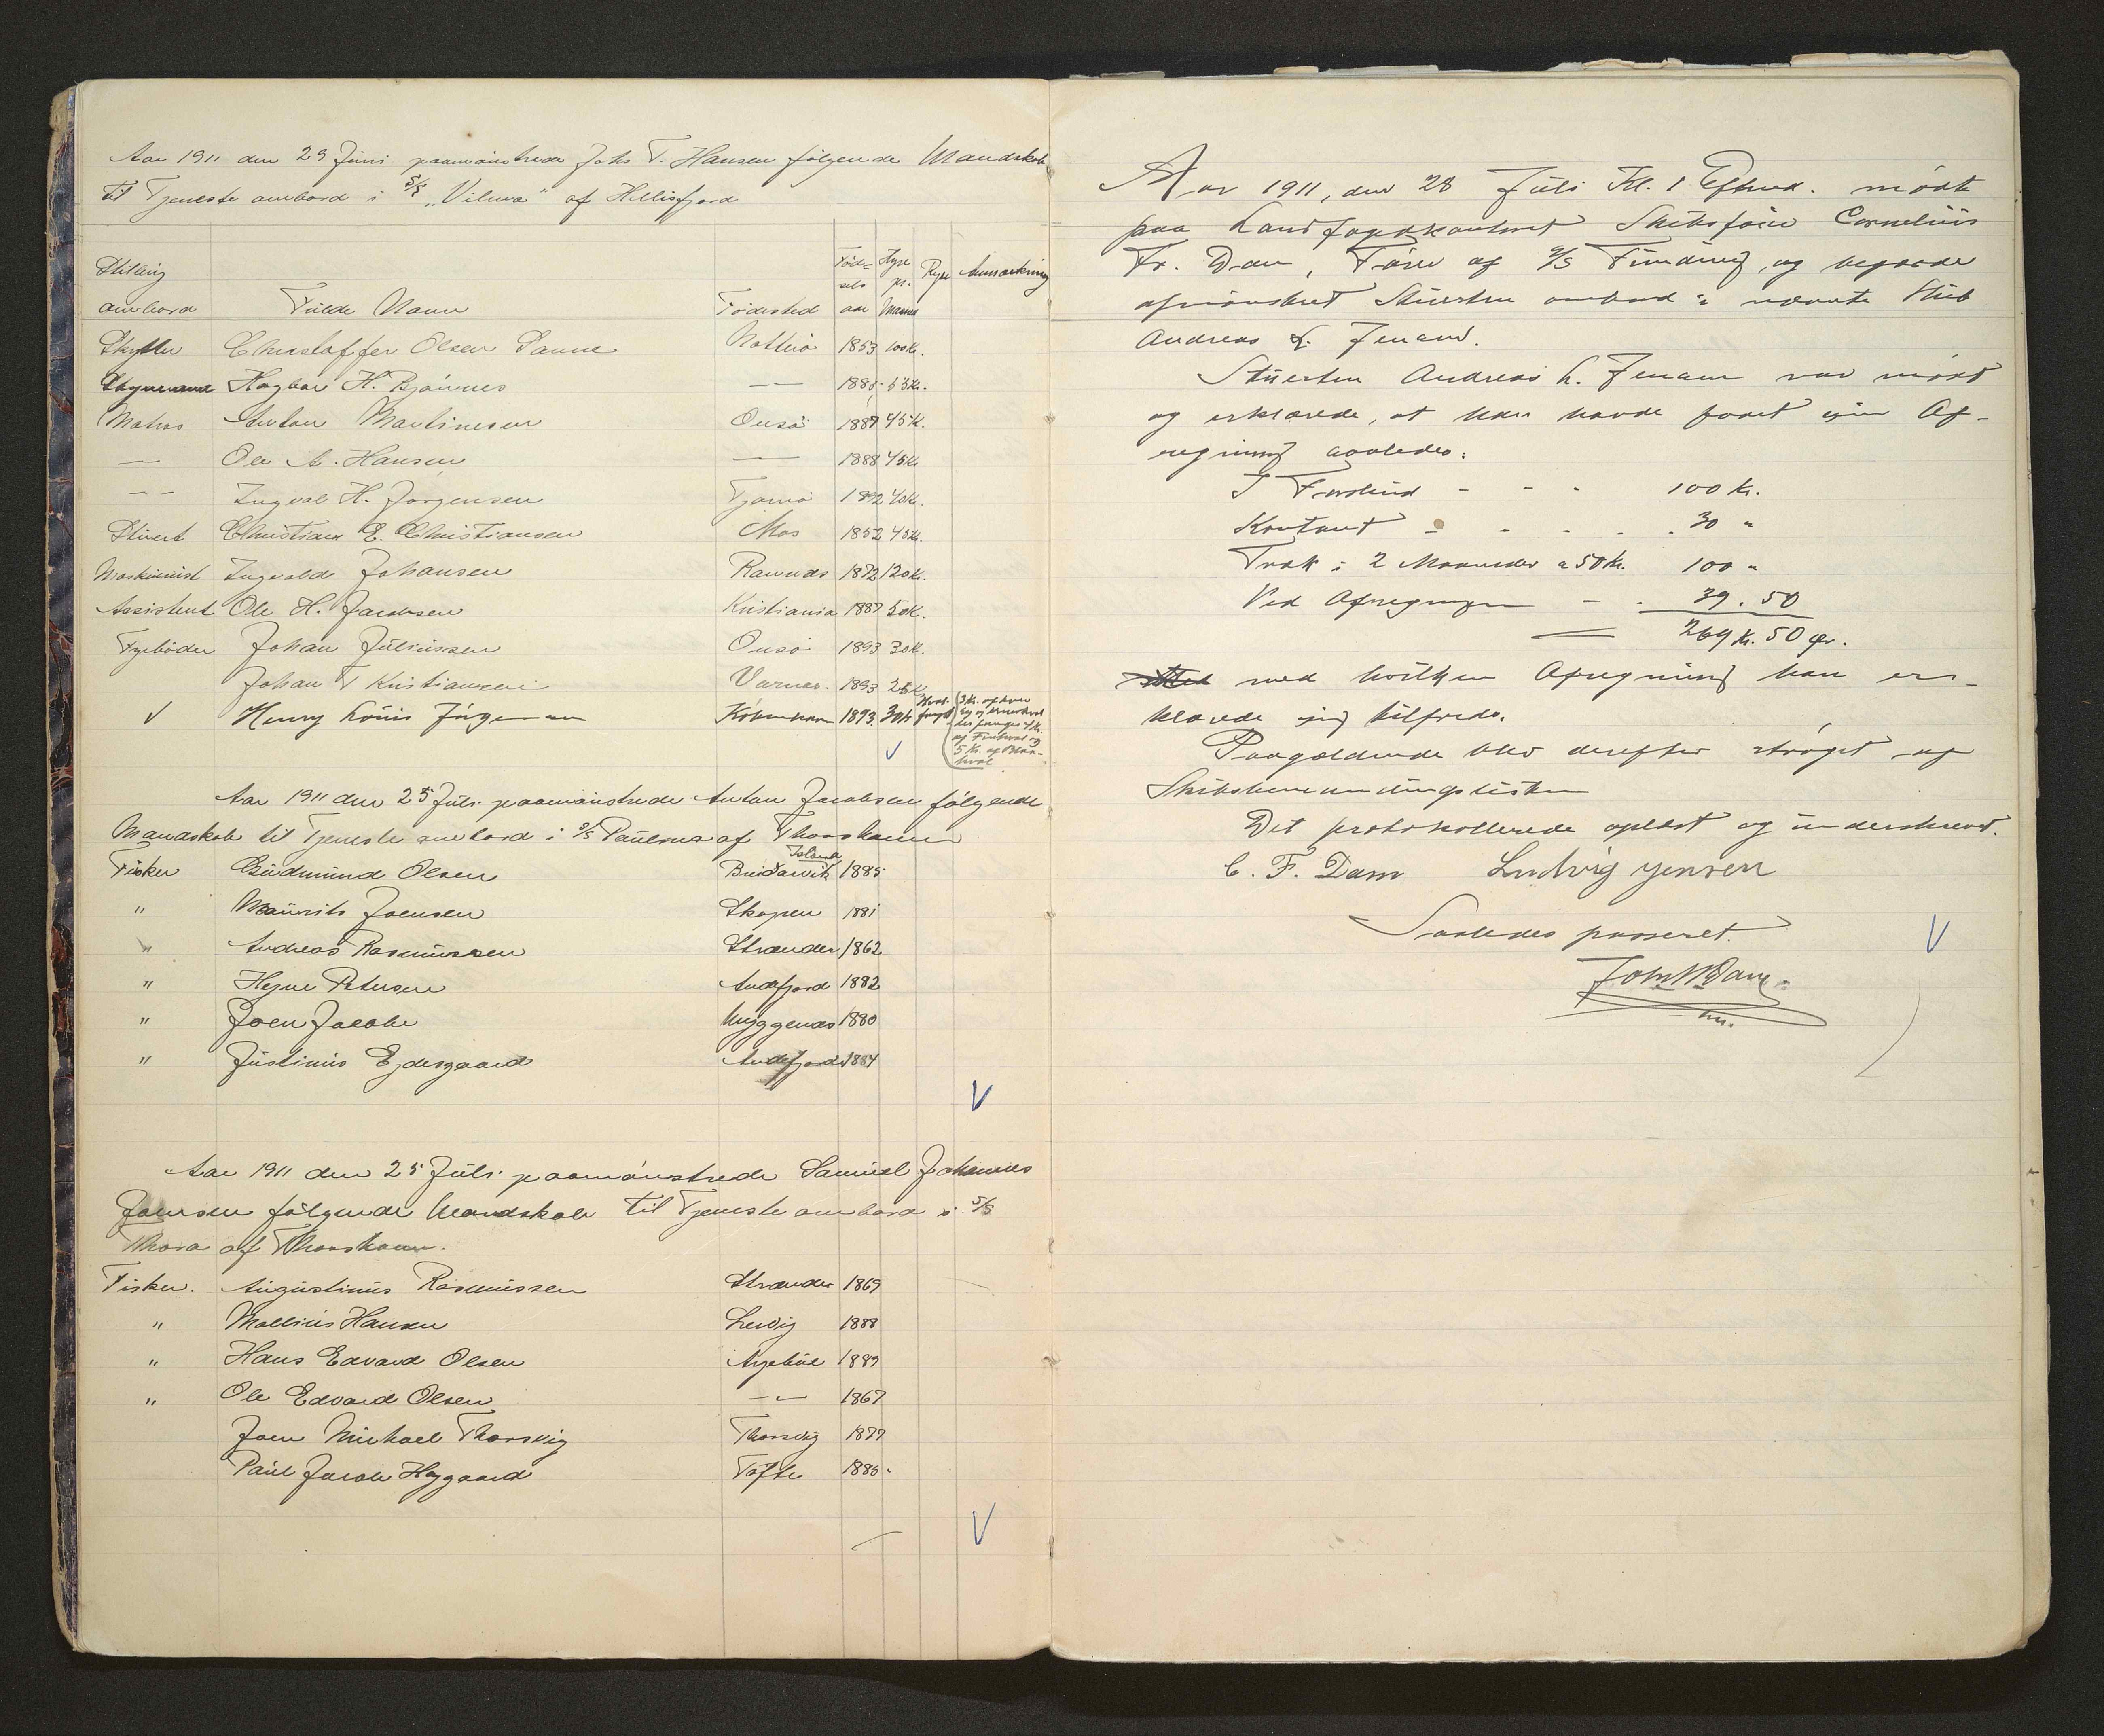 Aar 1911 den 29 Juni paamönstrede Johs T. Hansen følgende Mandskab
til Tjeneste ombord i S/S „Vilma" af Hellisfjord
Stilling
ombord Fulde Navn Fødested Fødselsaar Hyre pr. Maaned Rejse Anmærkning
Skytter Christoffer Olsen Sanne Nøtterö 1853 100 Kr.
Styrmand Hagbar H. Bjönnes — — 1885 53 Kr.
Matros Anton Martinesen Onsö 1887 45 K.
— Ole A. Hansen — 1888 45 Kr
— — Ingval H. Jörgensen Tjömö 1892 40 Kr.
Stivert Christian E. Christiansen Mos 1852 45 Kr.
Maskinnist Ingvald Johansen Ramnæs 1872 120 K.
Assistent Ole H. Jacobsen Kristiania 1887 50 K.
Fyrböder Johan Juliussen Onsö 1893 30 K.
Johan T Kristiansen 1893 25 K
V Henry Louis Jörgensen København 1893 30 Kr Hval-fangst (3 Kr. af hver
4 Kr.
af Finhval og
5 Kr. af Blaa-
hval
V
Aar 1911 den 25 Juli paamönstrede Anton Jacobsen følgende
Mandskab til Tjeneste ombord i S/S Paulina af Thorshavn
Fisker Gudmund Olsen Island 1885
" Maurits Joensen Skopen 1881
" Andreas Rasmussen Strænder 1862
" Hejne Petersen Andefjord 1882
" Joen Jacob Myggenæs 1880
" Justinus Ejdesgaard Andefjord 1884
V
Aar 1911 den 25 Juli paamönstrede Samuel Johannes
Joensen følgende Mandskab til Tjeneste ombord i S/S
Thora af Thorshavn.
Fisker. Augustinus Rasmussen Strænder 1869
" Mallius Hansen Lervig 1888
" Hans Edvard Olsen 1889
" Ole Edvard Olsen — — 1867
Joen Michael Thorsvig Thorsvig 1877
Paul Jacob Højgaard Tofte 1885
V
Aar 1911, den 28 Juli Kl. 1 Eftmd. mødte
paa Landfogedkontoret Skibsfører Cornelius
Fr. Dam, Fører af S/S Funding, og begærede
afmönstret Stuerten ombord i nævnte Skib
Andreas L. Jensen.
Stuerten Andreas L. Jensen var mødt
og erklærede, at han havde faaet sin Af-
regning saaledes:
I Forskud - - - 100 Kr.
Kontant - - - - 30 "
Træk i 2 Maaneder a 50 Kr. 100 "
Ved Afregningen - - 39.50
— 269 Kr. 50 Ør.
med hvilken Afregning han er-
klærede sig tilfreds.
Paagældende blev derefter strøget af
Skibsbemandingslisten
Det protokollerede oplæst og underskrevet.
C. F. Dam Ludvig Jensen
Saaledes passeret.
V